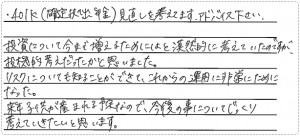 ・401K（確定拠出年金）見直しを考えてます。アドバイス下さい。
投資について今まで増えるためにはと漠然的に考えていたのですが
投機的考えだったかと思いました。
リスクについても知ることができて、これからの運用に非常にために
なった。
来年子供が産まれる予定なので、今後の事についてじっくり
考えていきたいと思います。